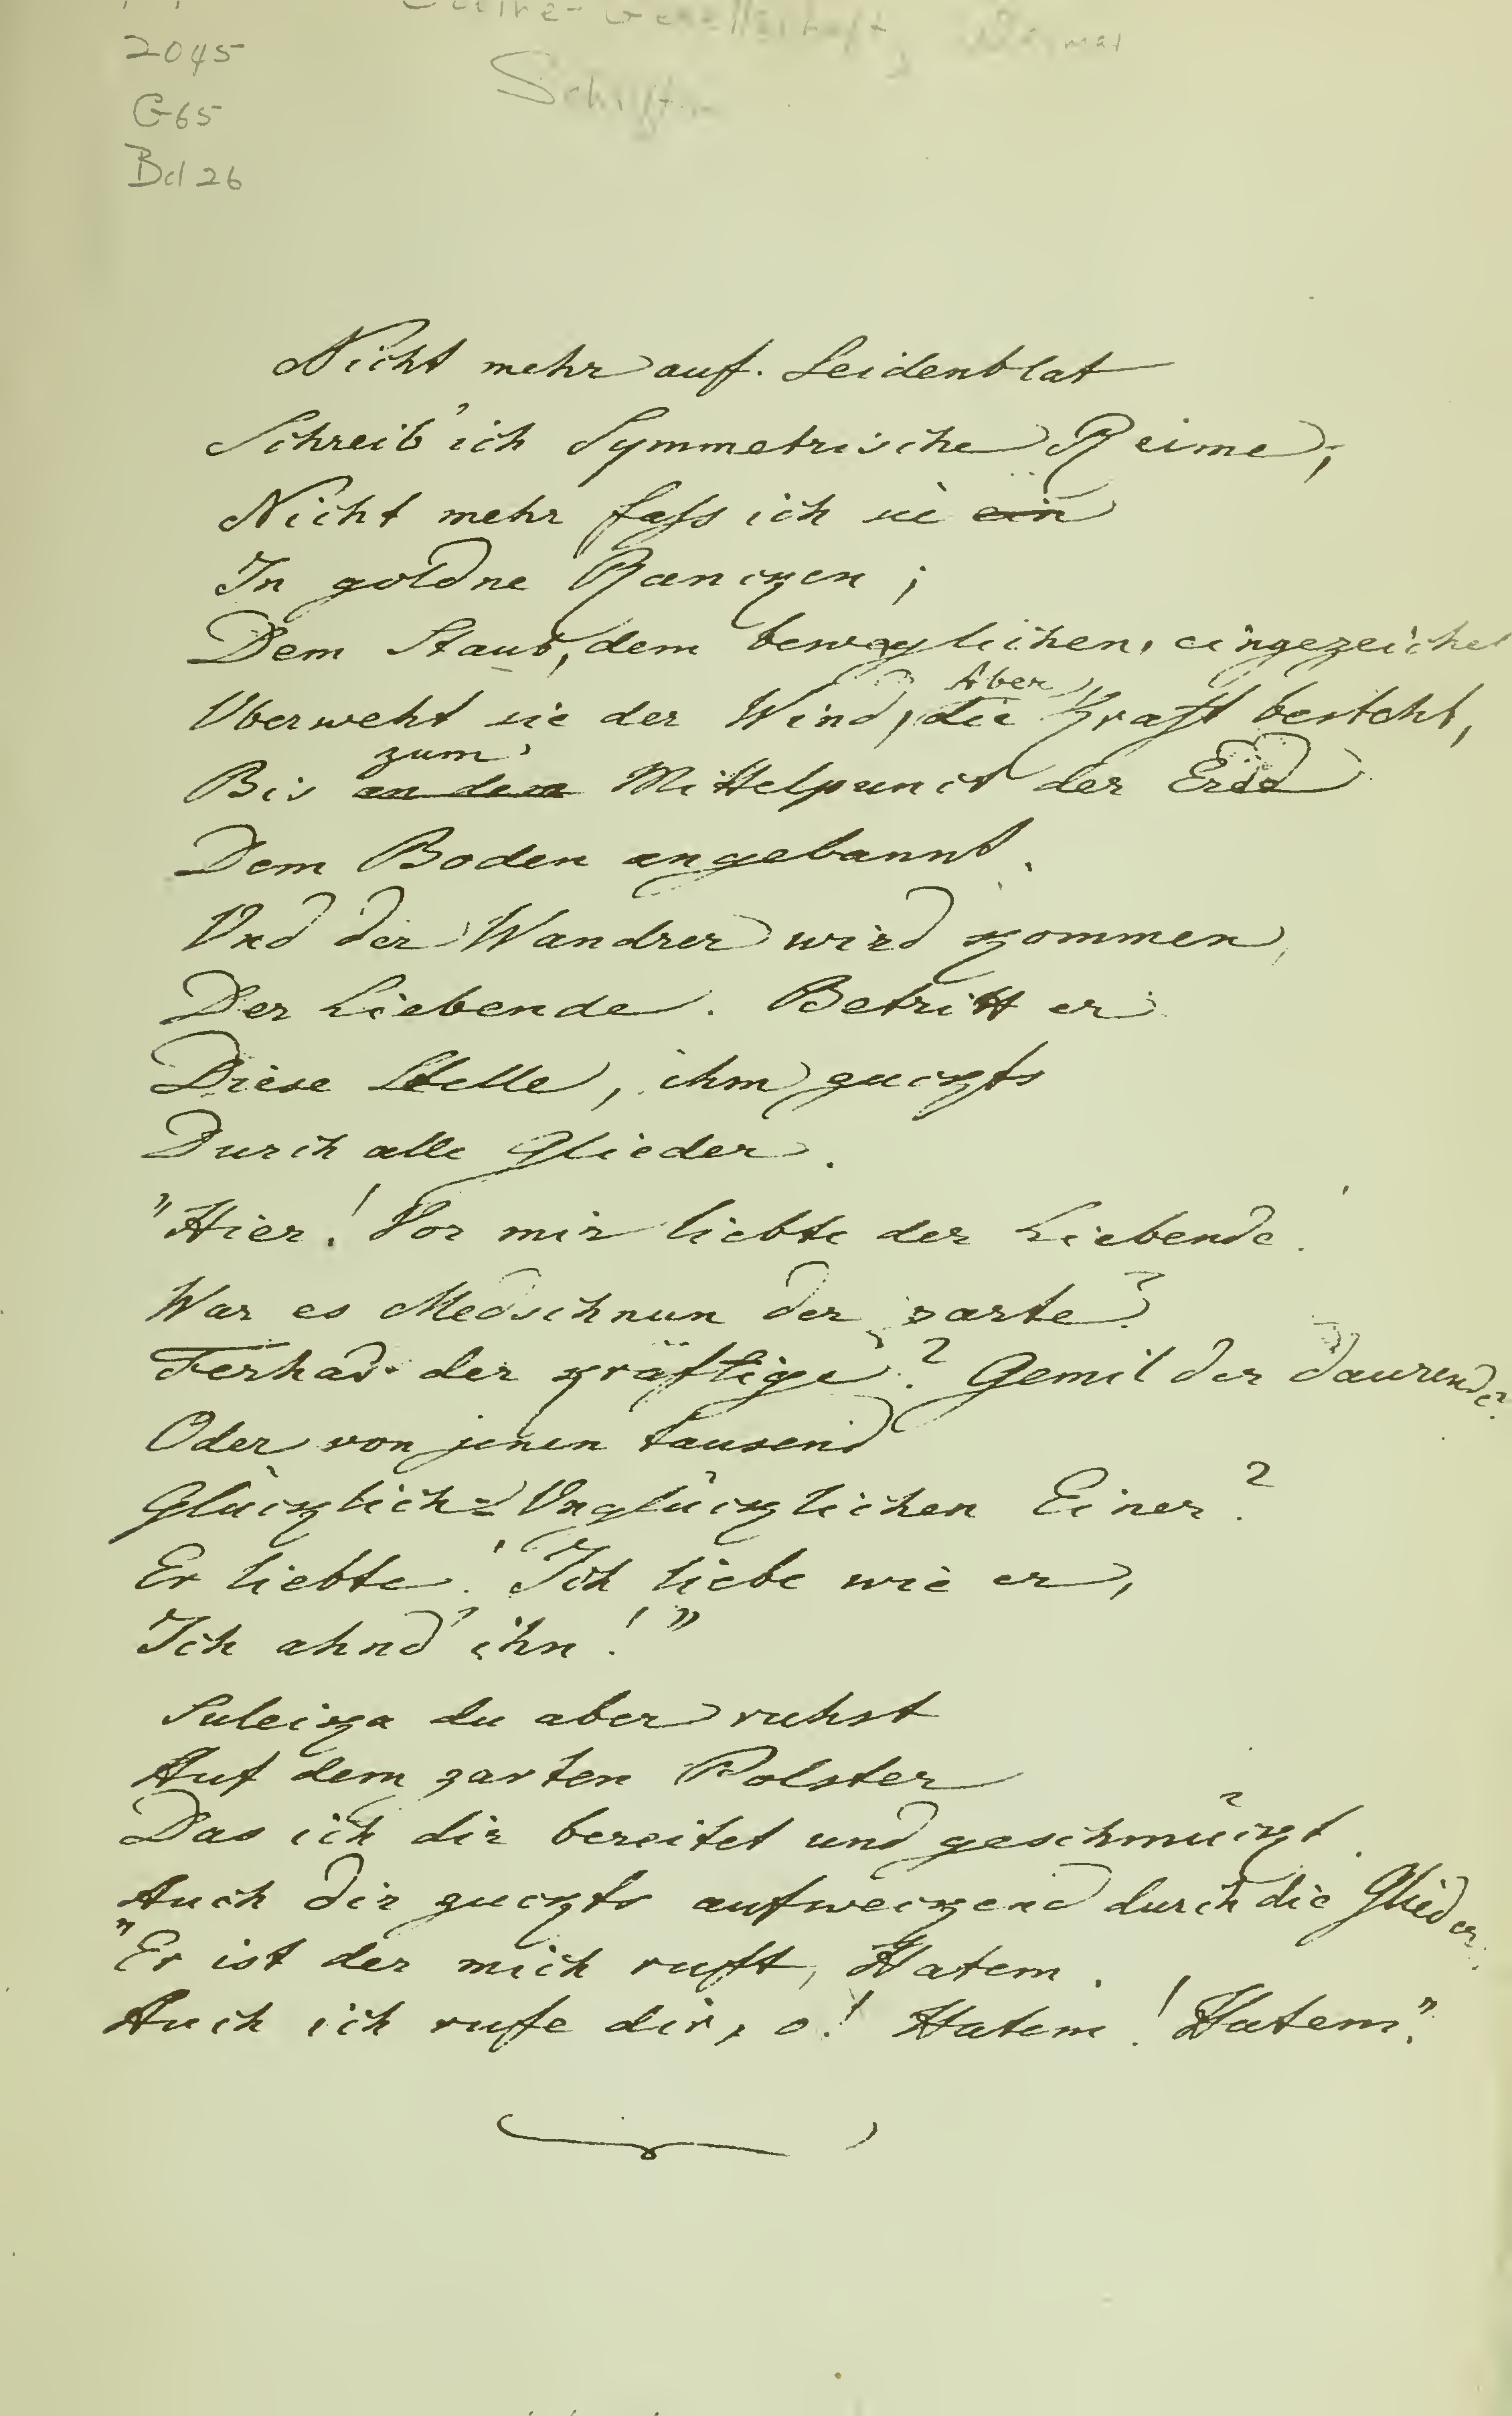 2045
G65
Bd 26
Goethe-Gesellschaft, Weimar
Schriften
Nicht mehr auf Seidenblat
Schreib' ich Symmetrische Reime;
Nicht mehr fass ich sie ein
In goldne Rancken;
Dem Staub, dem beweglichen, eingezeichnet
Überweht sie der Wind, Aber die Kraft besteht,
Bis zum an den Mittelpunct der Erde
Dem Boden angebannt.
Und der Wandrer wird kommen,
Der Liebende. Betritt er
Diese Stelle, ihm zuckts
Durch alle Glieder.
"Hier! Vor mir liebte der Liebende.
War es Medschnun der zarte?
Ferhad der kräftige? Gemil der daurende?
Oder von jenen tausend
Glücklich=Unglücklichen Einer?
Er liebte! Ich liebe wie er,
Ich ahnd' ihn!"
Suleika du aber ruhst
Auf dem zarten Polster
Das ich dir bereitet und geschmückt.
Auch dir zuckts aufweckend durch die Glieder.
"Er ist der mich ruft, Hatem.
Auch ich rufe dir, o! Hatem! Hatem."